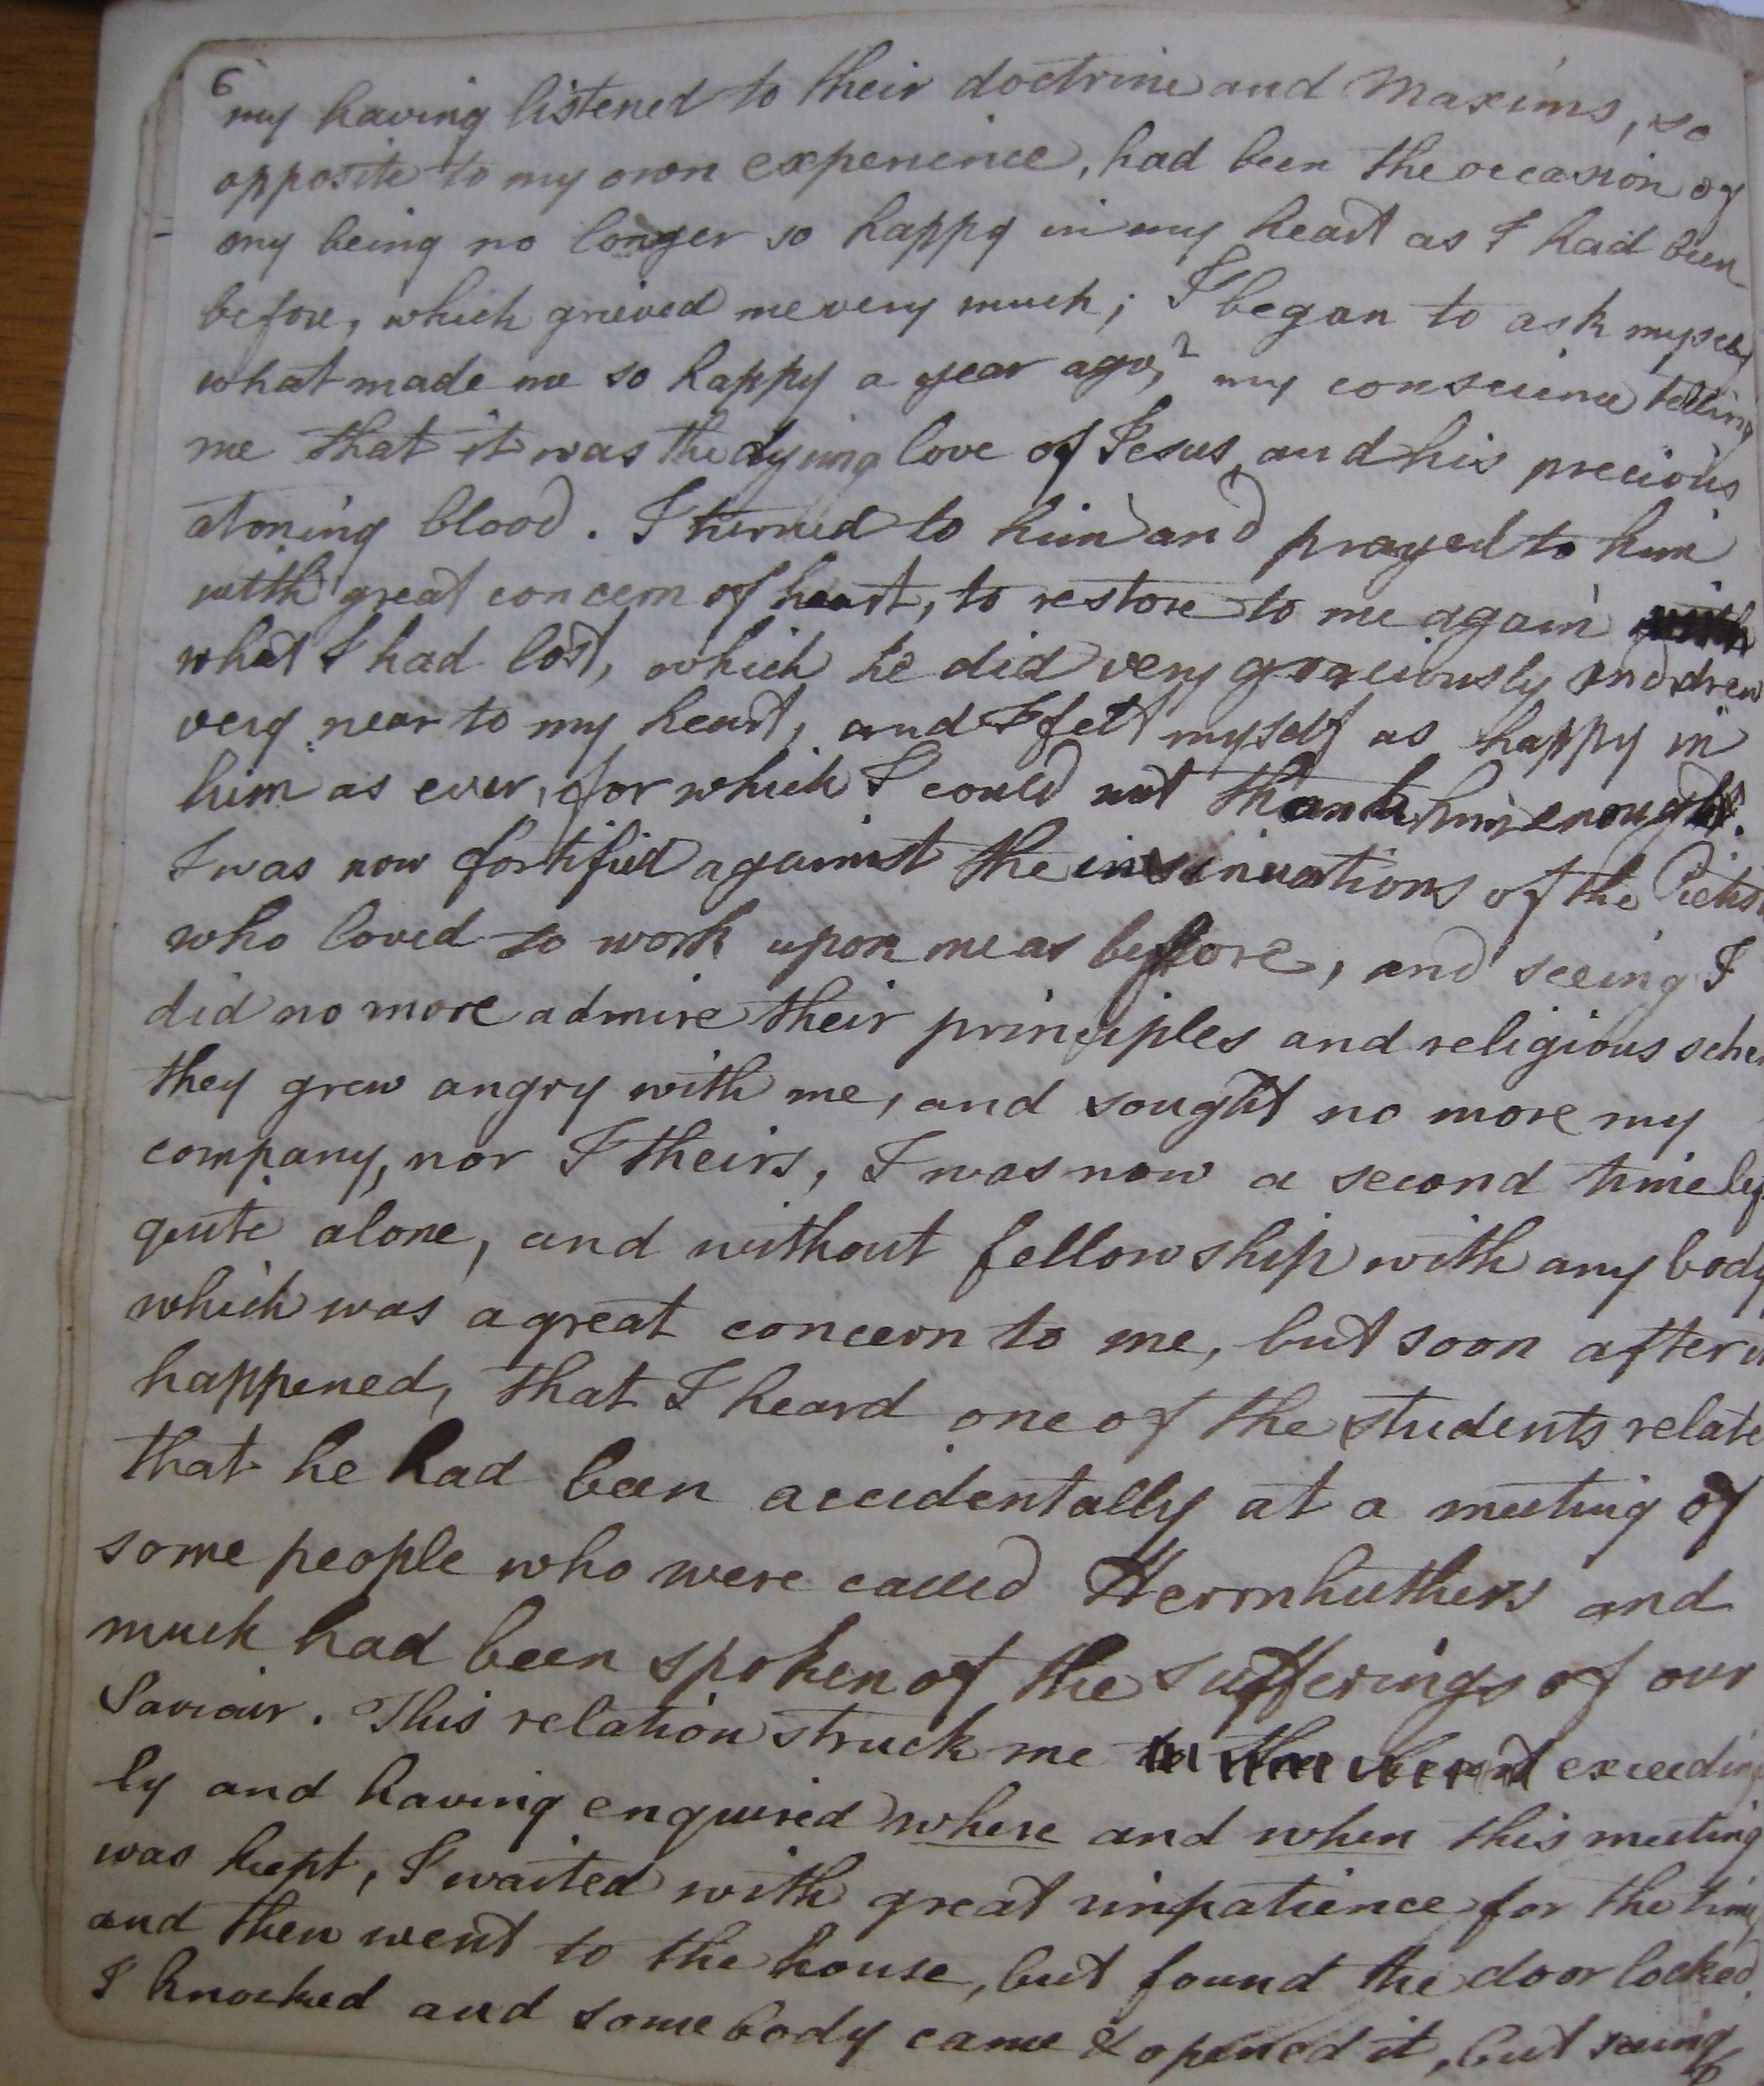 6
my having listened to their doctrine and Maxims, so
opposite to my own experience, had been the occasion of
my being no longer so happy in my heart as I had been
before, which grieved me very much; I began to ask myself
what made me so happy a year ago,? my conscience telling
me that it was the dying love of Jesus, and his precious
atoning blood. I turned to him and prayed to him
with great concern of heart, to restore to me again
what I had lost, which he did very graciously and drew
very near to my heart, and I felt myself as happy in
him as ever, for which I could not thank him enough.
I was now fortified against the insinuations of the
who loved to work upon me as before, and seeing I
did no more admire their principles and religious
they grew angry with me, and sought no more my
company, nor I theirs, I was now a second time
quite alone, and without fellowship with any body
which was a great concern to me, but soon after
happened, that I heard one of the students relate
that he had been accidentally at a meeting of
some people who were called Herrnhuthers and
much had been spoken of the sufferings of our
Saviour. This relation struck me exceeding
ly and having enquired where and when this meeting
was kept, I waited with great impatience for the time,
and then went to the house, but found the door locked,
I knocked and some body came & opened it, but seeing